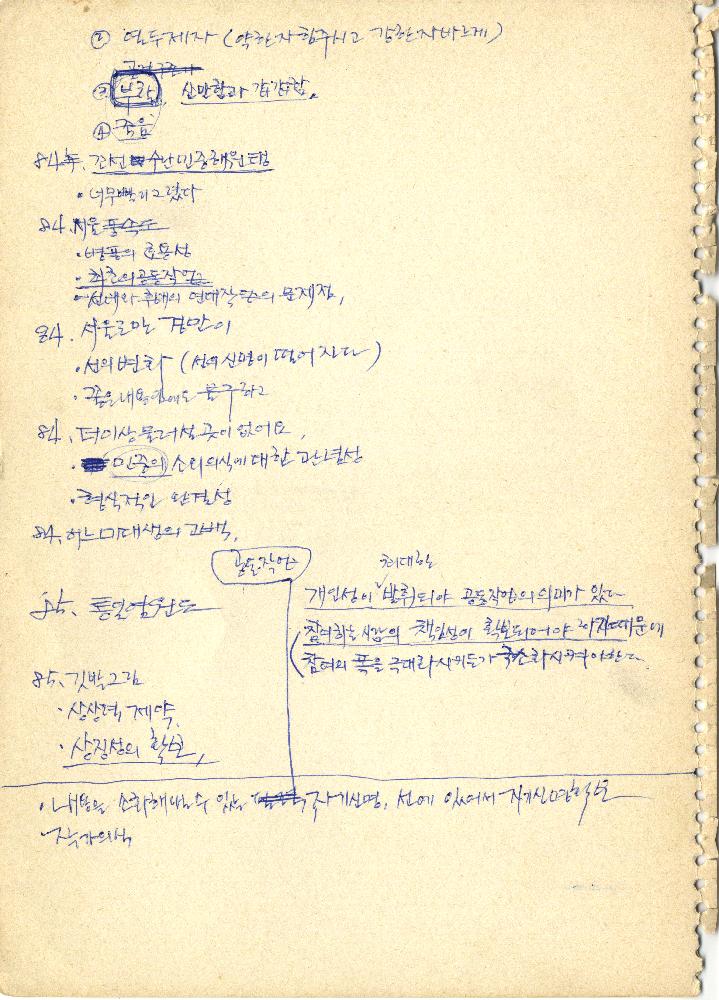 ② 열두제자 (약한자 힘주시고 강한자 바르게)
③ 부활, 산만함과 갑갑함.
④ 죽음
84年. 조선 수난민중해원탱
· 너무 빽빽이 그렸다
84. 서울풍속도
· 병풍의 효용성
· 최초의 공동작업
· 선배와 후배의 연대작업의 문제점,
84. 서울로 가는 길만이
· 선의 변화 (선의 신명이 떨어진다)
· 좋은 내용임에도 불구하고
84. 더이상 물러설 곳이 없어요,
· 민중의 소리의식에 대한 관념성
· 형식적인 완결성
84. 어느 미대생의 고백,
공동작업
85. 통일염원도
최대한
개인성이 발휘되야 공동작업의 의미가 있다
참여하는 사람의 책임성이 확보되어야 하기 때문에
참여의 폭을 극대화시키든가 극소화시켜야 한다.
85. 깃발그림
· 상상력 제약.
· 상징성의 확보,
· 내용을 소화해내는 수 있는 자기신명, 선에 있어서 자기신명확보
· 작가의식